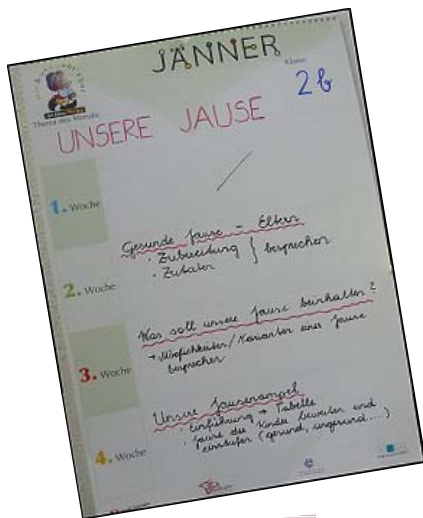 JÄNNER
Klasse
2b
Thema des Monats
UNSERE JAUSE
1. Woche
Gesunde Jause - Eltern
· Zubereitung } besprechen
· Zutaten
2. Woche
Was soll unsere Jause beinhalten?
→ Möglichkeiten/Varianten einer Jause
besprechen
3. Woche
Unsere Jausenampel
· Einführung → Tabelle
· Jause der Kinder bewerten und
einstufen (gesund, ungesund....)
4. Woche